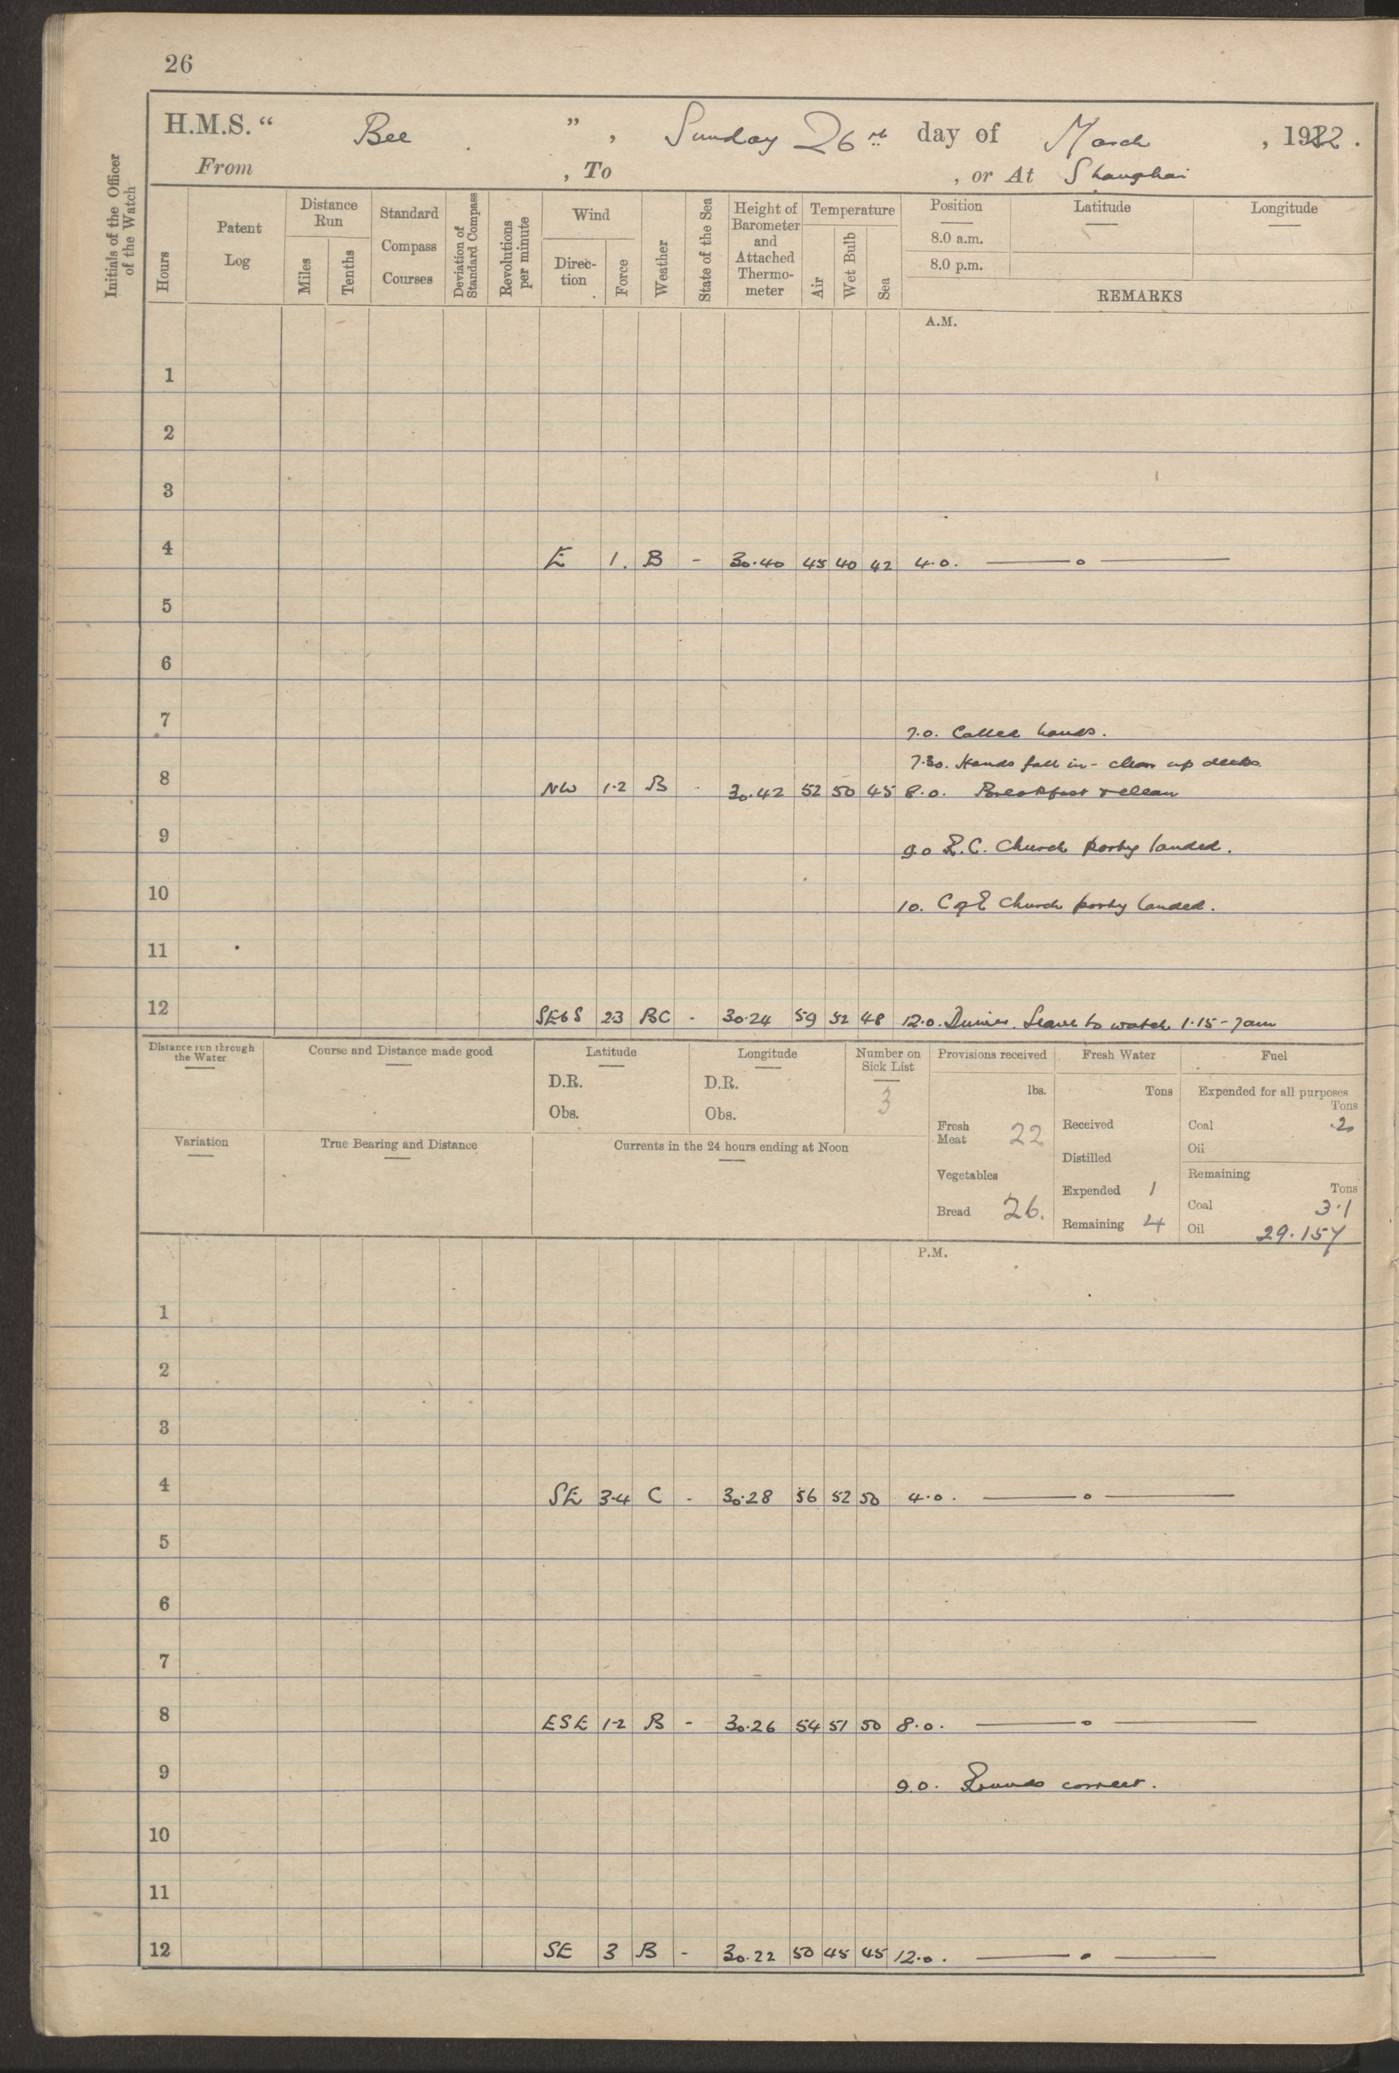 26
H.M.S. “ Bee ” , Sunday 26th day of March , 1922 .
From , To , or At Shanghai
Initials of the Officer of the Watch
Hours
Patent Log
Distance Run
Miles
Tenths
Standard Compass Courses
Deviation of Standard Compass
Revolutions per minute
Wind
Direction
Force
Weather
State of the Sea
Height of Barometer and Attached Thermometer
Temperature
Air
Wet Bulb
Sea
Position
8.0 a.m.
8.0 p.m.
Latitude
Longitude
REMARKS
A.M.
1
2
3
4 E 1. B - 30.40 45 40 42 4.0. —— o ——
5
6
7 7.0. Called hands.
7.30. Hands fall in - clear up decks
8 NW 1.2 B - 30.42 52 50 45 8.0. Breakfast & clean
9 9.0 R.C. Church party landed.
10 10. C of E Church party landed.
11
12 SE6S 23 BC - 30.24 59 52 48 12.0. Dinner. Leave to watch 1.15 - 7am
Distance run through the Water
Course and Distance made good
Latitude
D.R.
Obs.
Longitude
D.R.
Obs.
Number on Sick List
3
Provisions received
lbs.
Fresh Meat 22
Vegetables
Bread 26.
Fresh Water
Tons
Received
Distilled
Expended 1
Remaining 4
Fuel
Expended for all purposes
Tons
Coal .2
Oil
Remaining
Tons
Coal 3.1
Oil 29.157
Variation
True Bearing and Distance
Currents in the 24 hours ending at Noon
P.M.
1
2
3
4 SE 3-4 C - 30.28 56 52 50 4.0. —— o ——
5
6
7
8 ESE 1-2 B - 30.26 54 51 50 8.0. —— o ——
9 9.0. Rounds correct.
10
11
12 SE 3 B - 30.22 50 45 45 12.0. —— o ——